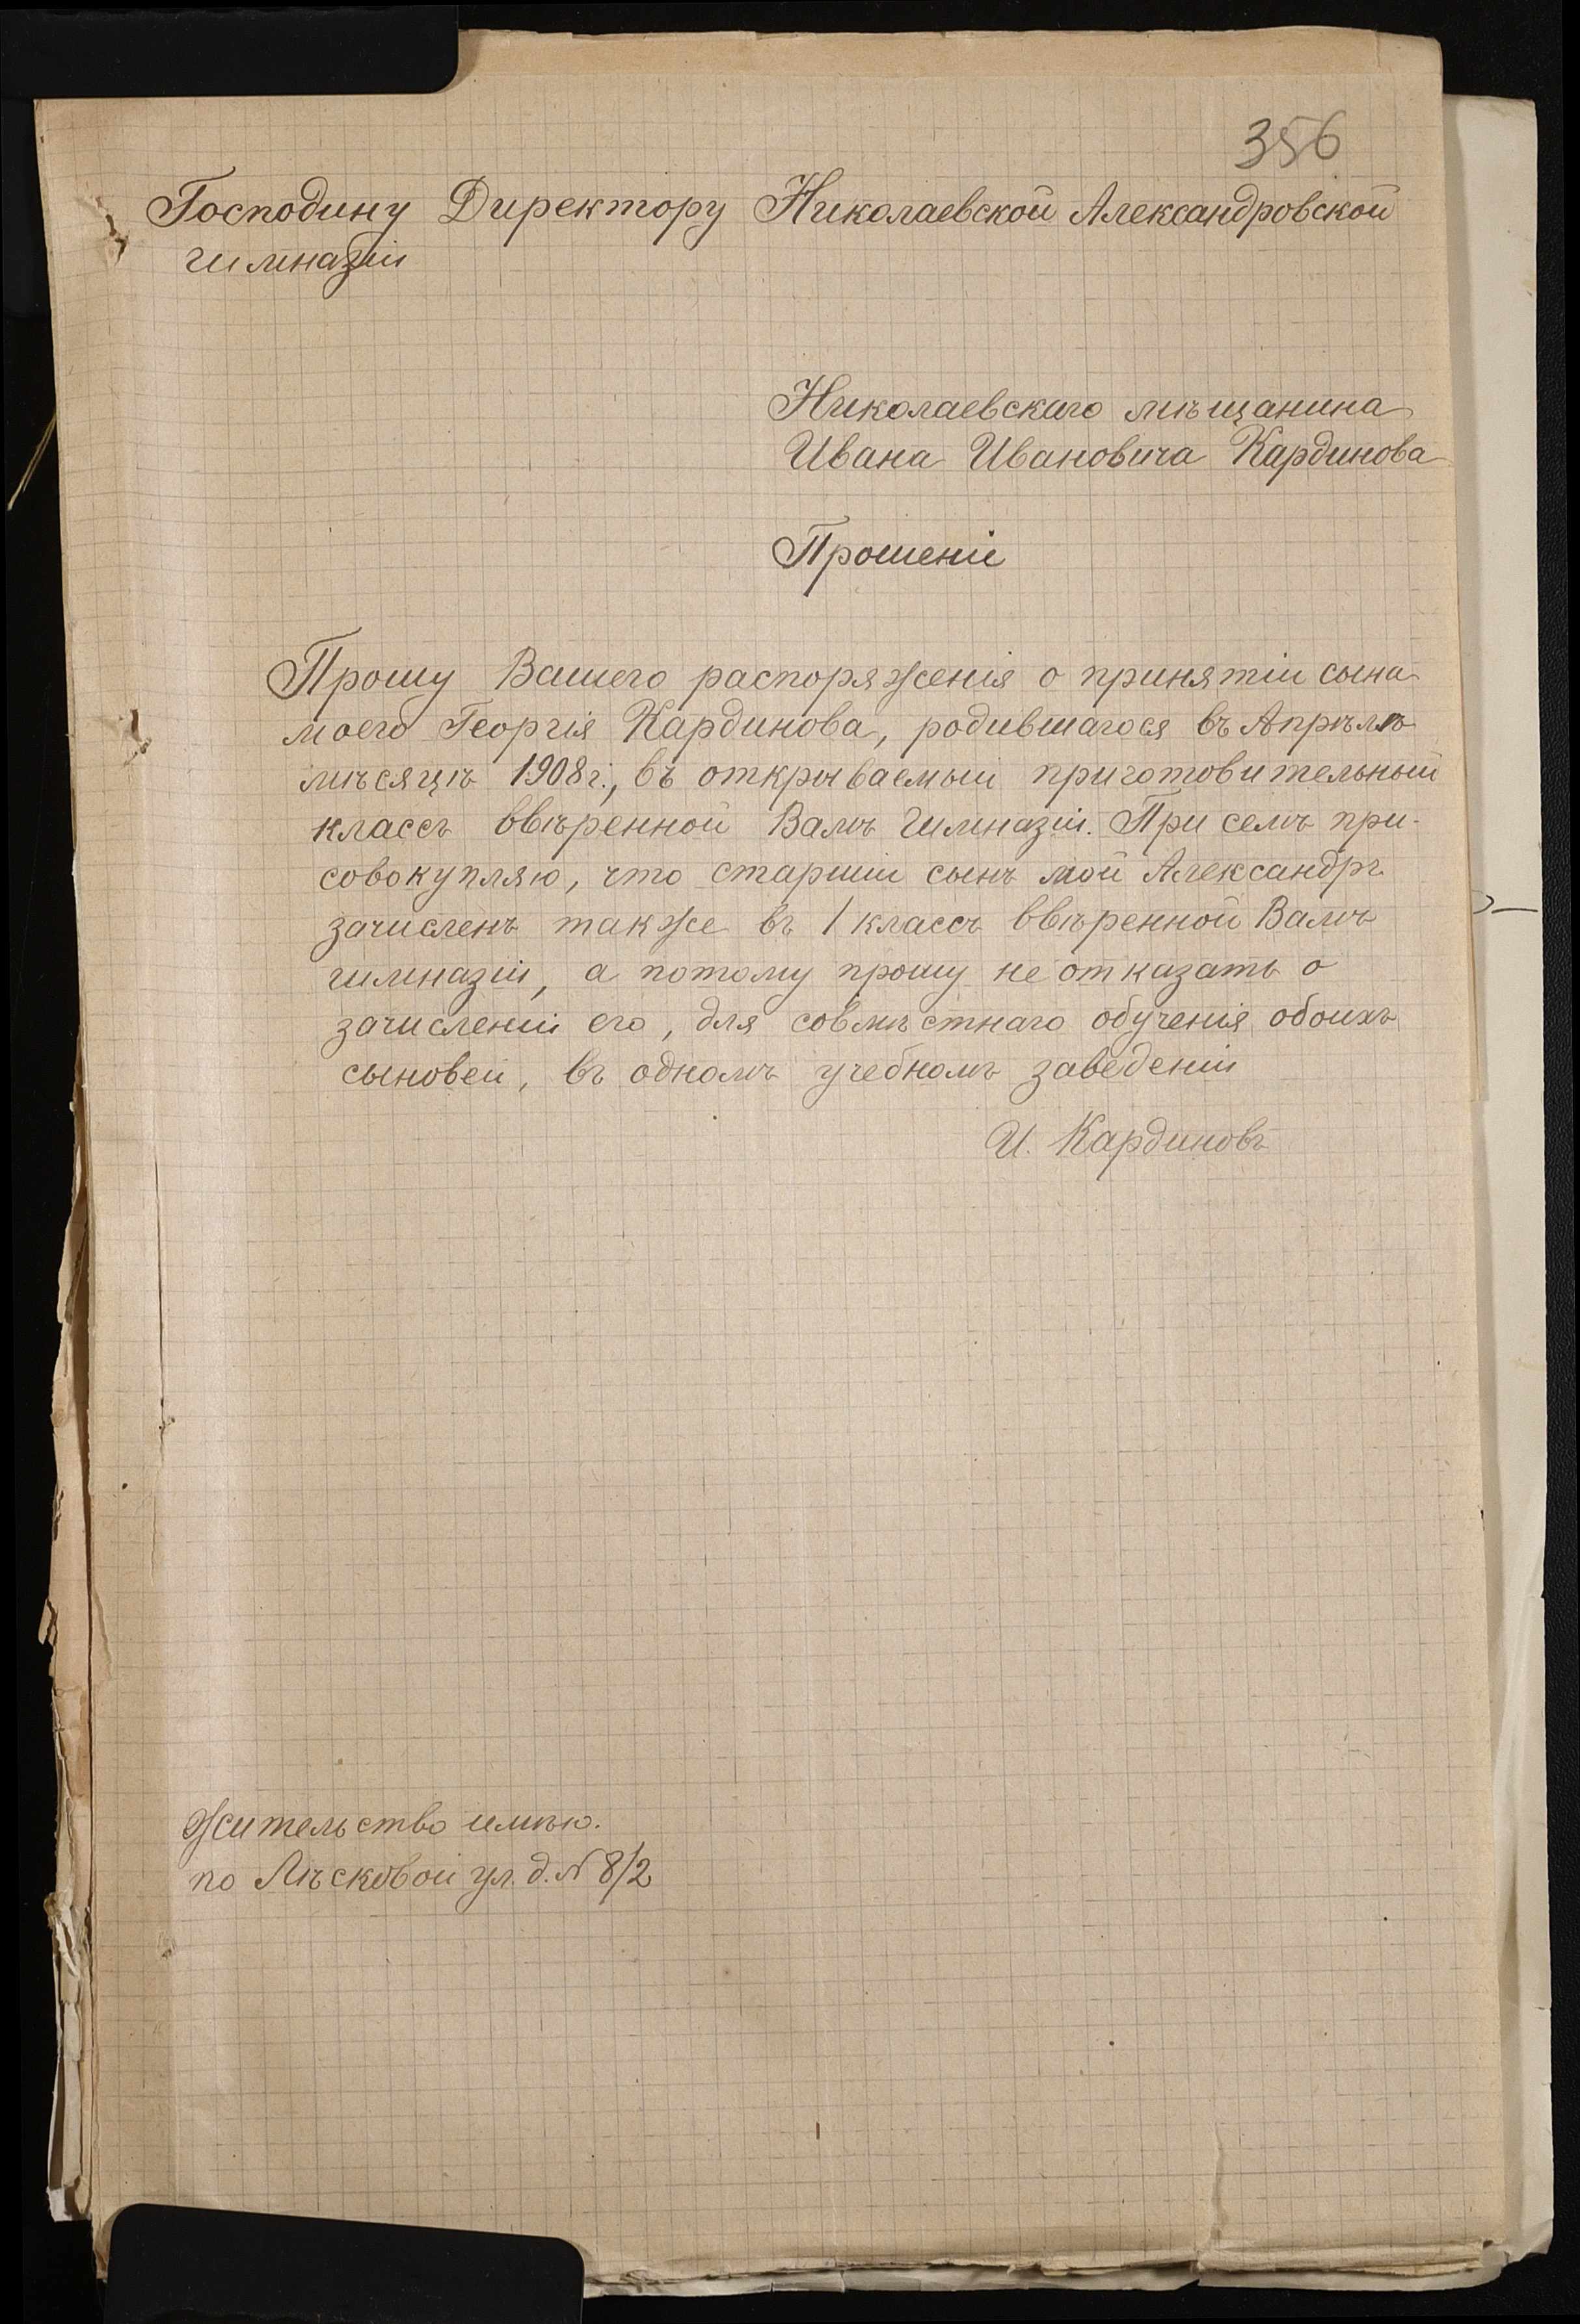 356
Господину Директору Николаевской Александровской
гимназіи
Николаевскаго мѣщанина
Ивана Ивановича Кардинова
Прошеніе
Прошу Вашего распоряженія о принятіи сына
моего Георгія Кардинова, родившагося въ Апрѣлѣ
мѣсяцѣ 1908 г., въ открываемый приготовительный
классъ ввѣренной Вамъ Гимназіи. При семъ при-
совокупляю, что старшій сынъ мой Александръ
зачисленъ также въ 1 классъ ввѣренной Вамъ
гимназіи, а потому прошу не отказать о
зачисленіи его, для совмѣстнаго обученія обоихъ
сыновей, въ одномъ учебномъ заведеніи
И. Кардиновъ
Жительство имѣю.
по Лѣсковой ул. д. № 8/2